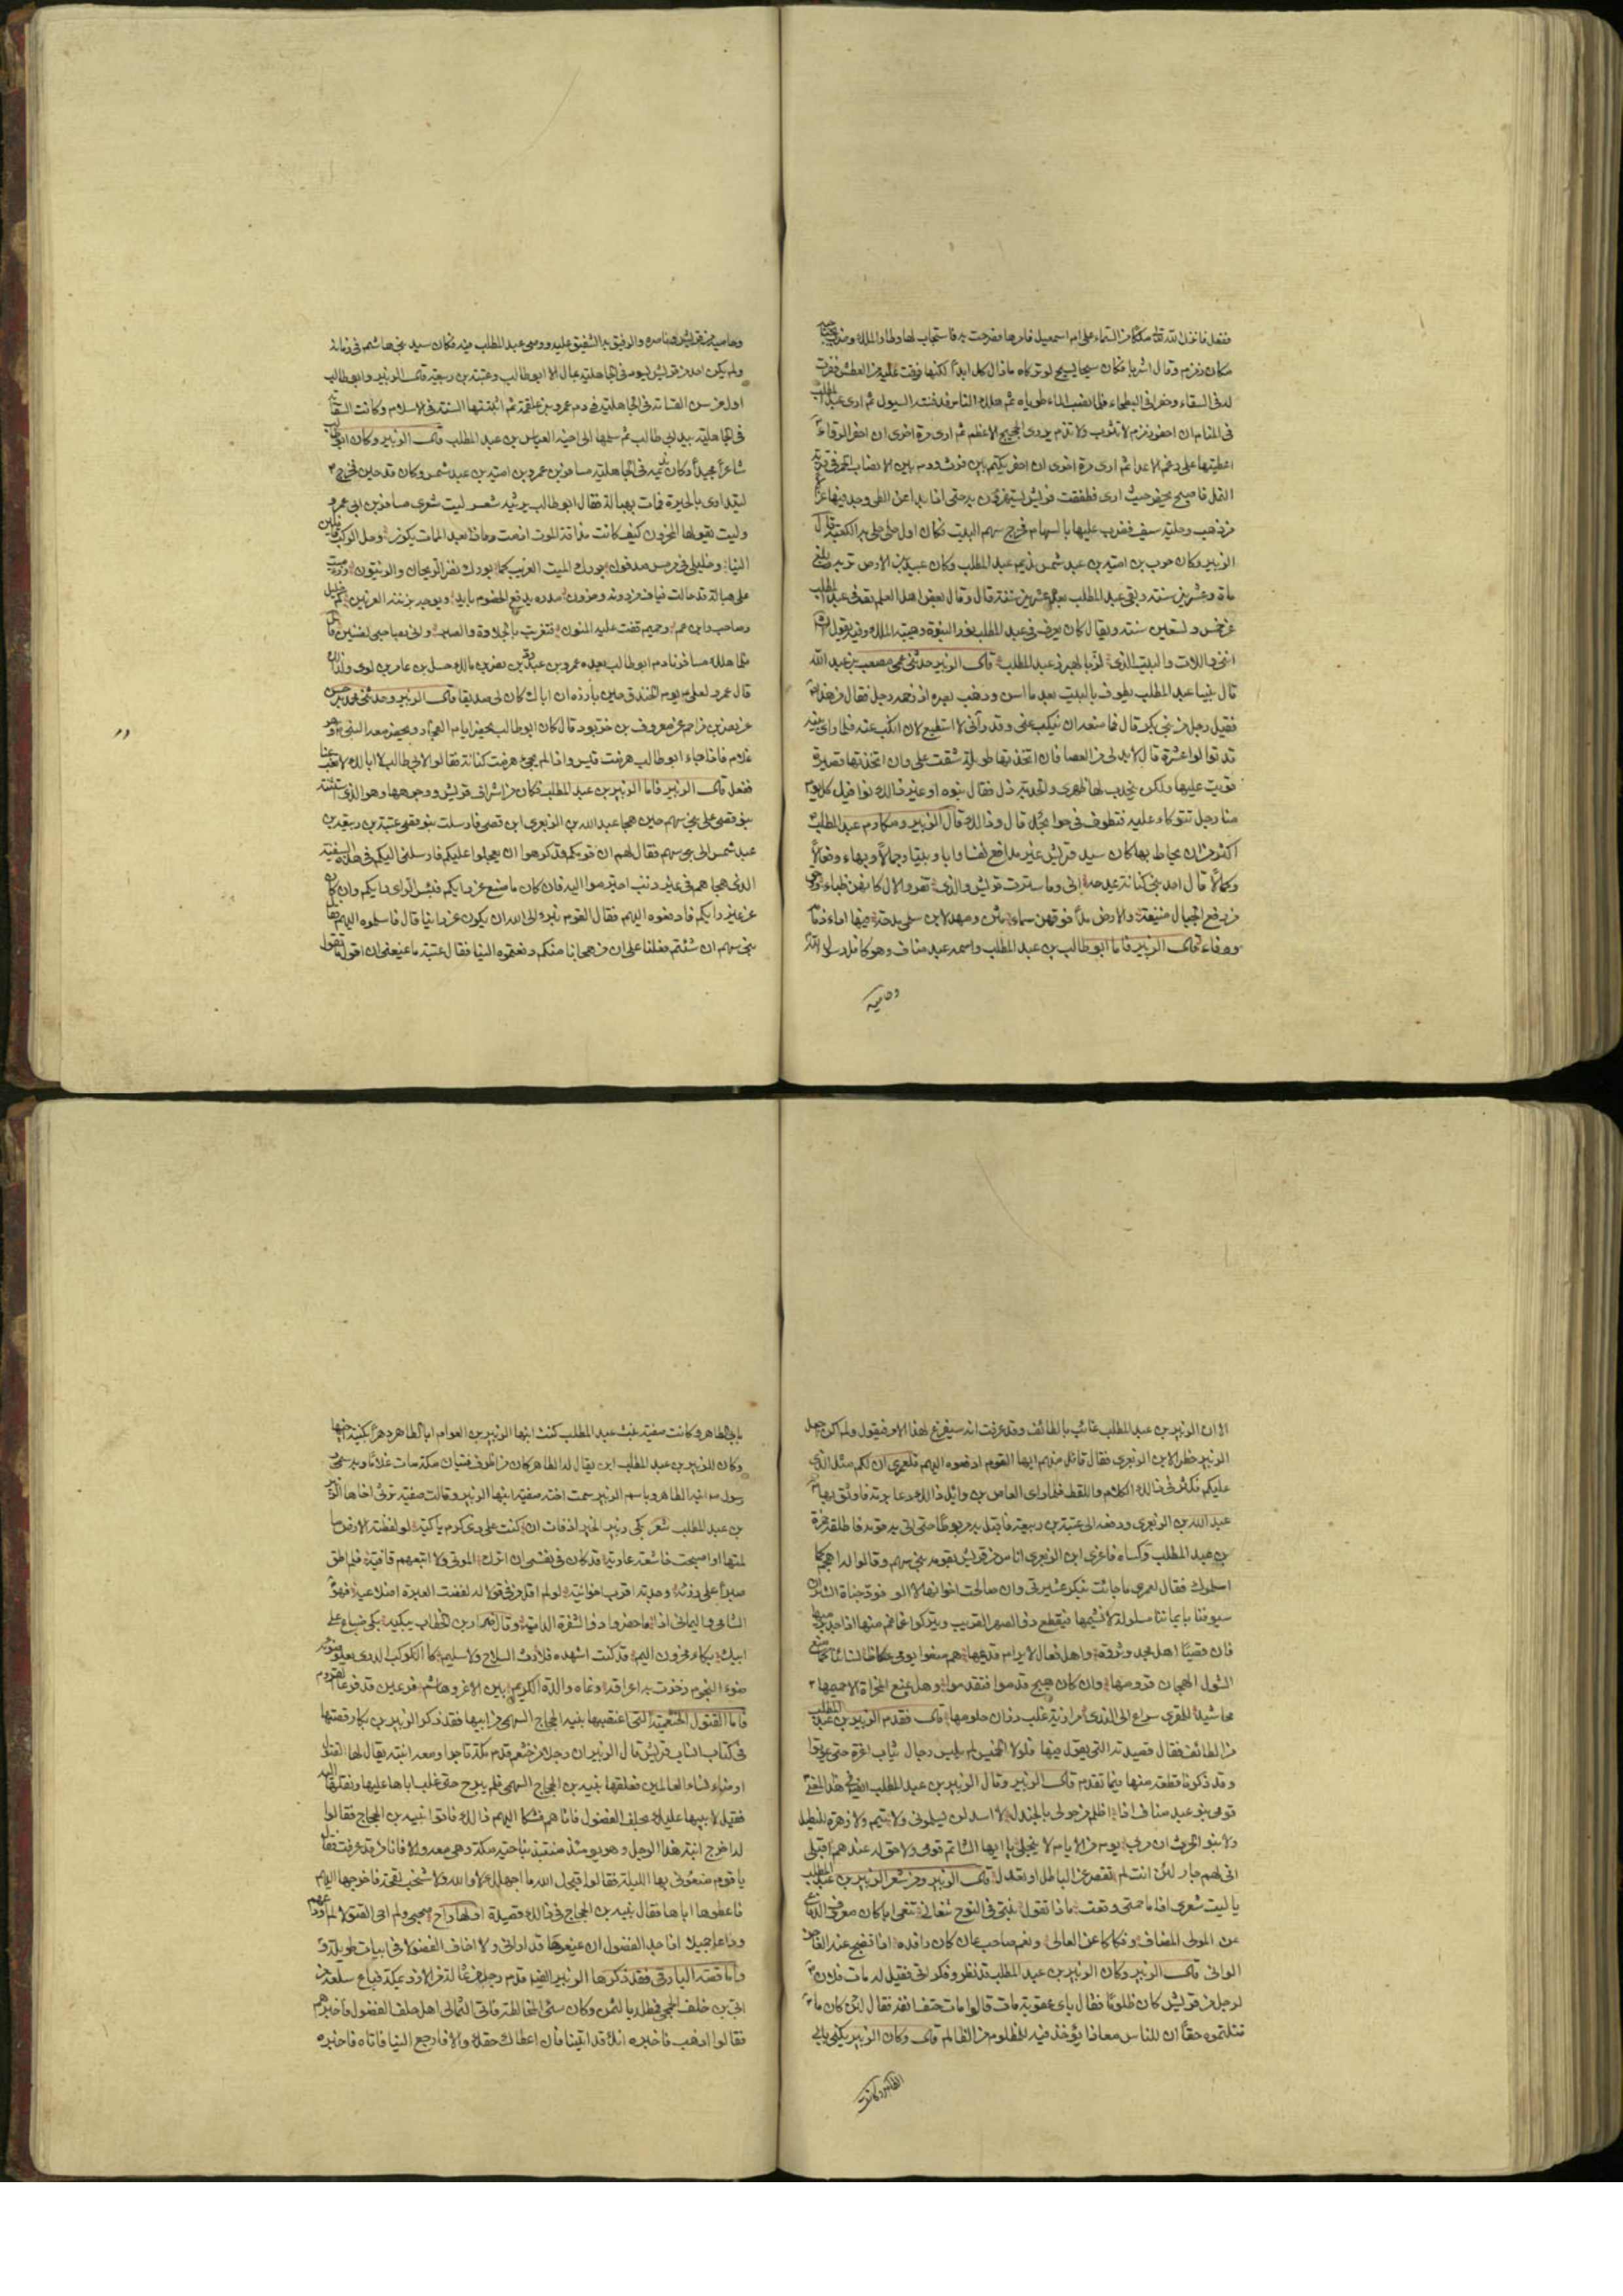 ففعل فانزل الله تعالى ملكا من السماء على ام اسمعيل فامرها فصرحت به فاستجاب لها وطار الملك وضرب
مكان زمزم وقال اشربا فكان سيحا يسيح لو تركاه ما زال كل ابدا لكنها فرقت عليه من العطش
له فى السقاء وحفر فى البطحاء فلما نضب الماء طوياه ثم هلك الناس فدفنته السيول ثم ارى عبد المطلب
فى المنام ان احفر زمزم لا تنزف ولا تذم يروى الحجيج الاعظم ثم ارى مرة اخرى ان احفر الرواء
اعطيتها على رغم الاعداء ثم ارى مرة اخرى ان احفر تكتم بين فرث ودم بين الانصاب الحمر فى قرية
النمل فاصبح يحفر حيث ارى فطفقت قريش يستهزؤن به حتى اذا بدا عن الطى وجد فيها غزالا
من ذهب وحلية سيف فضرب عليها بالسهام فخرج سهم البيت فكان اول حلى حلى به الكعبة قال
الزبير وكان حرب بن امية بن عبد شمس نديم عبد المطلب وكان عبيد بن الابرص تربه بلغ
مائة وعشرين سنة وبقى عبد المطلب بعده عشرين سنة قال وقال بعض اهل العلم توفى عبد المطلب
عن خمس وتسعين سنة ويقال كان يعرف فى عبد المطلب نور النبوة وهيبة الملك وفيه يقول الشاعر
اننى واللات والبيت الذى لز بالهبرز عبد المطلب قال الزبير حدثنى عمى مصعب بن عبد الله
قال بينا عبد المطلب يطوف بالبيت بعد ما اسن وذهب بصره اذ زحمه رجل فقال من هذا
فقيل رجل من بنى بكر قال فما منعه ان ينكب عنى وقد رآنى لا استطيع لان انكب عنه فلما راى بنيه
قد توالوا عشرة قال لا بد لى من العصا فان اتخذتها طويلة شقت على وان اتخذتها قصيرة
قويت عليها ولكن ينحدب لها ظهرى والحدبة ذل فقال بنوه او غير ذلك يوافيك كل يوم
منا رجل تتوكاء عليه فتطوف فى حوائجك قال وذلك قال الزبير ومكارم عبد المطلب
اكثر من ان يحاط بها كان سيد قريش غير مدافع نفسا وابا وبيتا وجمالا وبهاء وفعالا
وكمالا قال احد بنى كنانة يمدحه انى وما سترت قريش والذى تعزو لال كانهن ظباء
من رفع الجبال منيفة والارض مدا فوقهن سماء مثن ومهد لابن سلمى مدحة فيها اداء ذمة
ووفاء قال الزبير فاما ابو طالب بن عبد المطلب واسمه عبد مناف وهو كافل رسول الله
وحاميه
وحاميه من قريش وناصره والرفيق به الشفيق عليه ووصى عبد المطلب فيه فكان سيد بنى هاشم فى زمانه
ولم يكن احد من قريش يسود فى الجاهلية بمال الا ابو طالب وعتبة بن ربيعة قال الزبير وابو طالب
اول من سن القسامة فى الجاهلية فى دم عمرو بن علقمة ثم اثبتتها السنة فى الاسلام وكانت السقاية
فى الجاهلية بيد ابى طالب ثم سلمها الى اخيه العباس بن عبد المطلب قال الزبير وكان ابو طالب
شاعرا مجيدا وكان نديمه فى الجاهلية مسافر بن عمرو بن امية بن عبد شمس وكان قد حبن فخرج
ليتداوى بالحيرة فمات بهبالة فقال ابو طالب يرثيه شعر ليت شعرى مسافر بن ابى عمرو
وليت يقولها المحزون كيف كانت مذاقة الموت اذ مت وماذا بعد الممات يكون رحل الركب قافلين
الينا وخليلى فى مرمس مدفون بورك الميت الغريب كما بورك نضر الريحان والزيتون
على هبالة قد حالت فياف من دونه وحزون مدره يدفع الخصوم بايد وبوجه يزينه العرنين كم خليل
وصاحب وابن عم وحميم قضت عليه المنون فتعزيت بالجلادة والصبر وانى بصاحبى لضنين قال
فلما هلك مسافر نادم ابو طالب بعده عمرو بن عبد ود بن نضر بن مالك حسل بن عامر بن لوى ولذلك
قال عمرو لعلى يوم الخندق حين بارزه ان اباك كان لى صديقا قال الزبير وحدثنى محمد بن حسن
عن نصر بن مزاحم عن معروف بن خربوذ قال كان ابو طالب يحضر ايام الفجار ويحضر معه النبى وهو
غلام فاذا جاء ابو طالب هزمت قيس واذا لم يجئ هزمت كنانة فقالوا لابى طالب لا ابا لك لا تغب عنا
ففعل قال الزبير فاما الزبير بن عبد المطلب فكان من اشراف قريش ووجوهها وهو الذى استثنته
بنو قصى على بنى سهم حين هجا عبد الله بن الزبعرى ابن قصى فارسلت بنو قصى عتبة بن ربيعة بن
عبد شمس الى بنى سهم فقال لهم ان قومكم قد كرهوا ان يعجلوا عليكم فارسلنى اليكم فى هذا السفيه
الذى هجاهم فى غير ذنب اجترموا اليه فان كان ما صنع عن رايكم فبئس الراى رايكم وان كان
عن غير رايكم فادفعوه اليهم فقال القوم نبرؤ الى الله ان يكون عن راينا قال فاسلموه اليهم فقال
بنى سهم ان شئتم فعلنا على ان من هجانا منكم دفعتموه الينا فقال عتبة ما يمنعنى ان اقول ما تقول
الا ان الزبير بن عبد المطلب غائب بالطائف وقد عرفت انه سيفرغ لهذا الامر فيقول ولم اكن اجعل
الزبير خطرا لابن الزبعرى فقال قائل منهم ايها القوم ادفعوه اليهم فلعمرى ان لكم مثل الذى
عليكم فكثر فى ذلك الكلام واللغط فلما راى العاص بن وائل ذلك دعا برمة فاوثق بها
عبد الله بن الزبعرى ودفعه الى عتبة بن ربيعة فاقبل به مربوطا حتى اتى به قومه فاطلقه حمزة
بن عبد المطلب وكساه فاغرى ابن الزبعرى اناس من قريش بقومه بنى سهم وقالوا له اهجهم كما
اسلموك فقال لعمرى ما جائت بنكر عشيرتى وان صالحت اخوانها لا الومها فود جناة الشر ان
سيوفنا بايماننا مسلولة لا نشيمها فيقطع ذو الصهر القريب ويتركوا غماغم منها اذ اجد
فان قصيا اهل مجد وثروة واهل فعال لا يرام قديمها هم منعوا يومى عكاظ نساءنا كما منع
الشول الهجان قرومها وان كان هيج قدموا فتقدموا وهل يمنع المخزاة الا حميمها
محاشيد للمقرى سراع الى الندى مرازبة غلب رزان حلومها قال فقدم الزبير بن عبد المطلب
من الطائف فقال قصيدته التى يقول فيها فلولا الحمس لم يلبس رجال ثياب اعزة حتى يموتوا
وقد ذكرنا قطعة منها فيما تقدم قال الزبير وقال الزبير بن عبد المطلب ايضا فى هذا المعنى
قومى بنو عبد مناف اذا اظلم من حولى بالجندل لا اسد لن يسلمونى ولا تيم ولا زهرة للنيطل
ولا بنو الحرث ان مر بى يوم من الايام لا ينجلى يا ايها الشاتم قومى ولا حق له عندهم اقبل
انى لهم جار لئن انت لم تقصر عن الباطل او تعدل قال الزبير ومن شعر الزبير بن عبد المطلب
يا ليت شعرى اذا ما حمتى وقعت ماذا تقول بنتى فى النوح تنعانى تنعى ابا كان معروف الدفاع
عن المولى المضاف وفكاكا عن العانى ونعم صاحب عان كان رافده اذا تضجع عنه العاجز
الوانى قال الزبير وكان الزبير بن عبد المطلب ذا نظر وفكر اتى فقيل له مات فلان
لرجل من قريش كان ظلوما فقال باى عقوبة مات قالوا مات حتف انفه فقال لئن كان ما
قلتموه حقا ان للناس معادا يؤخذ فيه للمظلوم من الظالم قال وكان الزبير يكنى بابى
الطاهر وكانت
بابى الطاهر وكانت صفية بنت عبد المطلب كنت ابنها الزبير بن العوام ابا الطاهر دهرا بكنية اخيها
وكان للزبير بن عبد المطلب ابن يقال له الطاهر كان من اظرف فتيان مكة مات غلاما وبه سمى
رسول الله ابنه الطاهر وباسم الزبير سمت اخته صفية ابنها الزبير وقالت صفية ترثى اخاها الزبير
بن عبد المطلب شعر بكى زبير الخير اذ فات ان كنت على ذى كرم باكية لو لفظته الارض ما
لمتها او اصبحت خاشعة عارية قد كان فى نفسى ان اترك الموتى ولا اتبعهم قافية فلم اطق
صبرا على رزئه وجدته اقرب اخوانيه لو لم اقل من فى قولا له لقضت العبرة اضلاعيه فهو
الشامى واليمانى اذا ما حضروا ذو الشفرة الدامية وقال ضرار بن الخطاب يبكيه بكى ضباع على
ابيك بكاء محزون اليم قد كنت اشهده فلا رث السلاح ولا سليم كالكوكب الدرى يعلو ضوؤه
ضوء النجوم زخرت به اعراقه ونماه والده الكريم بين الاغر وهاشم فرعين قد فرعا القروم
فاما القتول الخثعمية التى اغتصبها نبيه الحجاج السهمى من ابيها فقد ذكر الزبير بن بكار قصتها
فى كتاب انساب قريش قال الزبير ان رجلا من خثعم قدم مكة تاجرا ومعه ابنة يقال لها القتول
اوضاء نساء العالمين فعلقها نبيه بن الحجاج السهمى فلم يبرح حتى غلب اباها عليها ونقلها اليه
فقيل لابيها عليك بحلف الفضول فاتاهم فشكا اليهم ذلك فاتوا نبيه بن الحجاج فقالوا
له اخرج ابنة هذا الرجل وهو يومئذ منتبذ بناحية مكة وهى معه والا فانا من قد عرفت فقال
يا قوم متعونى بها الليلة فقالوا قبحك الله ما اجهلك لا والله ولا شخب لقحة فاخرجها اليهم
فاعطوها اباها فقال نبيه بن الحجاج فى ذلك قصيدة اولها راح صحبى ولم احى القتولا لم اودعهم
وداعا جميلا اذ اجد الفضول ان يمنعوها قد ارانى ولا اخاف الفضولا فى ابيات طويلة
واما قصة البارقى فقد ذكرها الزبير ايضا قدم رجل من ثمالة من الازد مكة فباع سلعة من
ابى بن خلف الجمحى فمطله بالثمن وكان سئ المخالطة فاتى الثمالى اهل حلف الفضول فاخبرهم
فقالوا اذهب فاخبره انك قد اتيتنا فان اعطاك حقك والا فارجع الينا فاتاه فاخبره